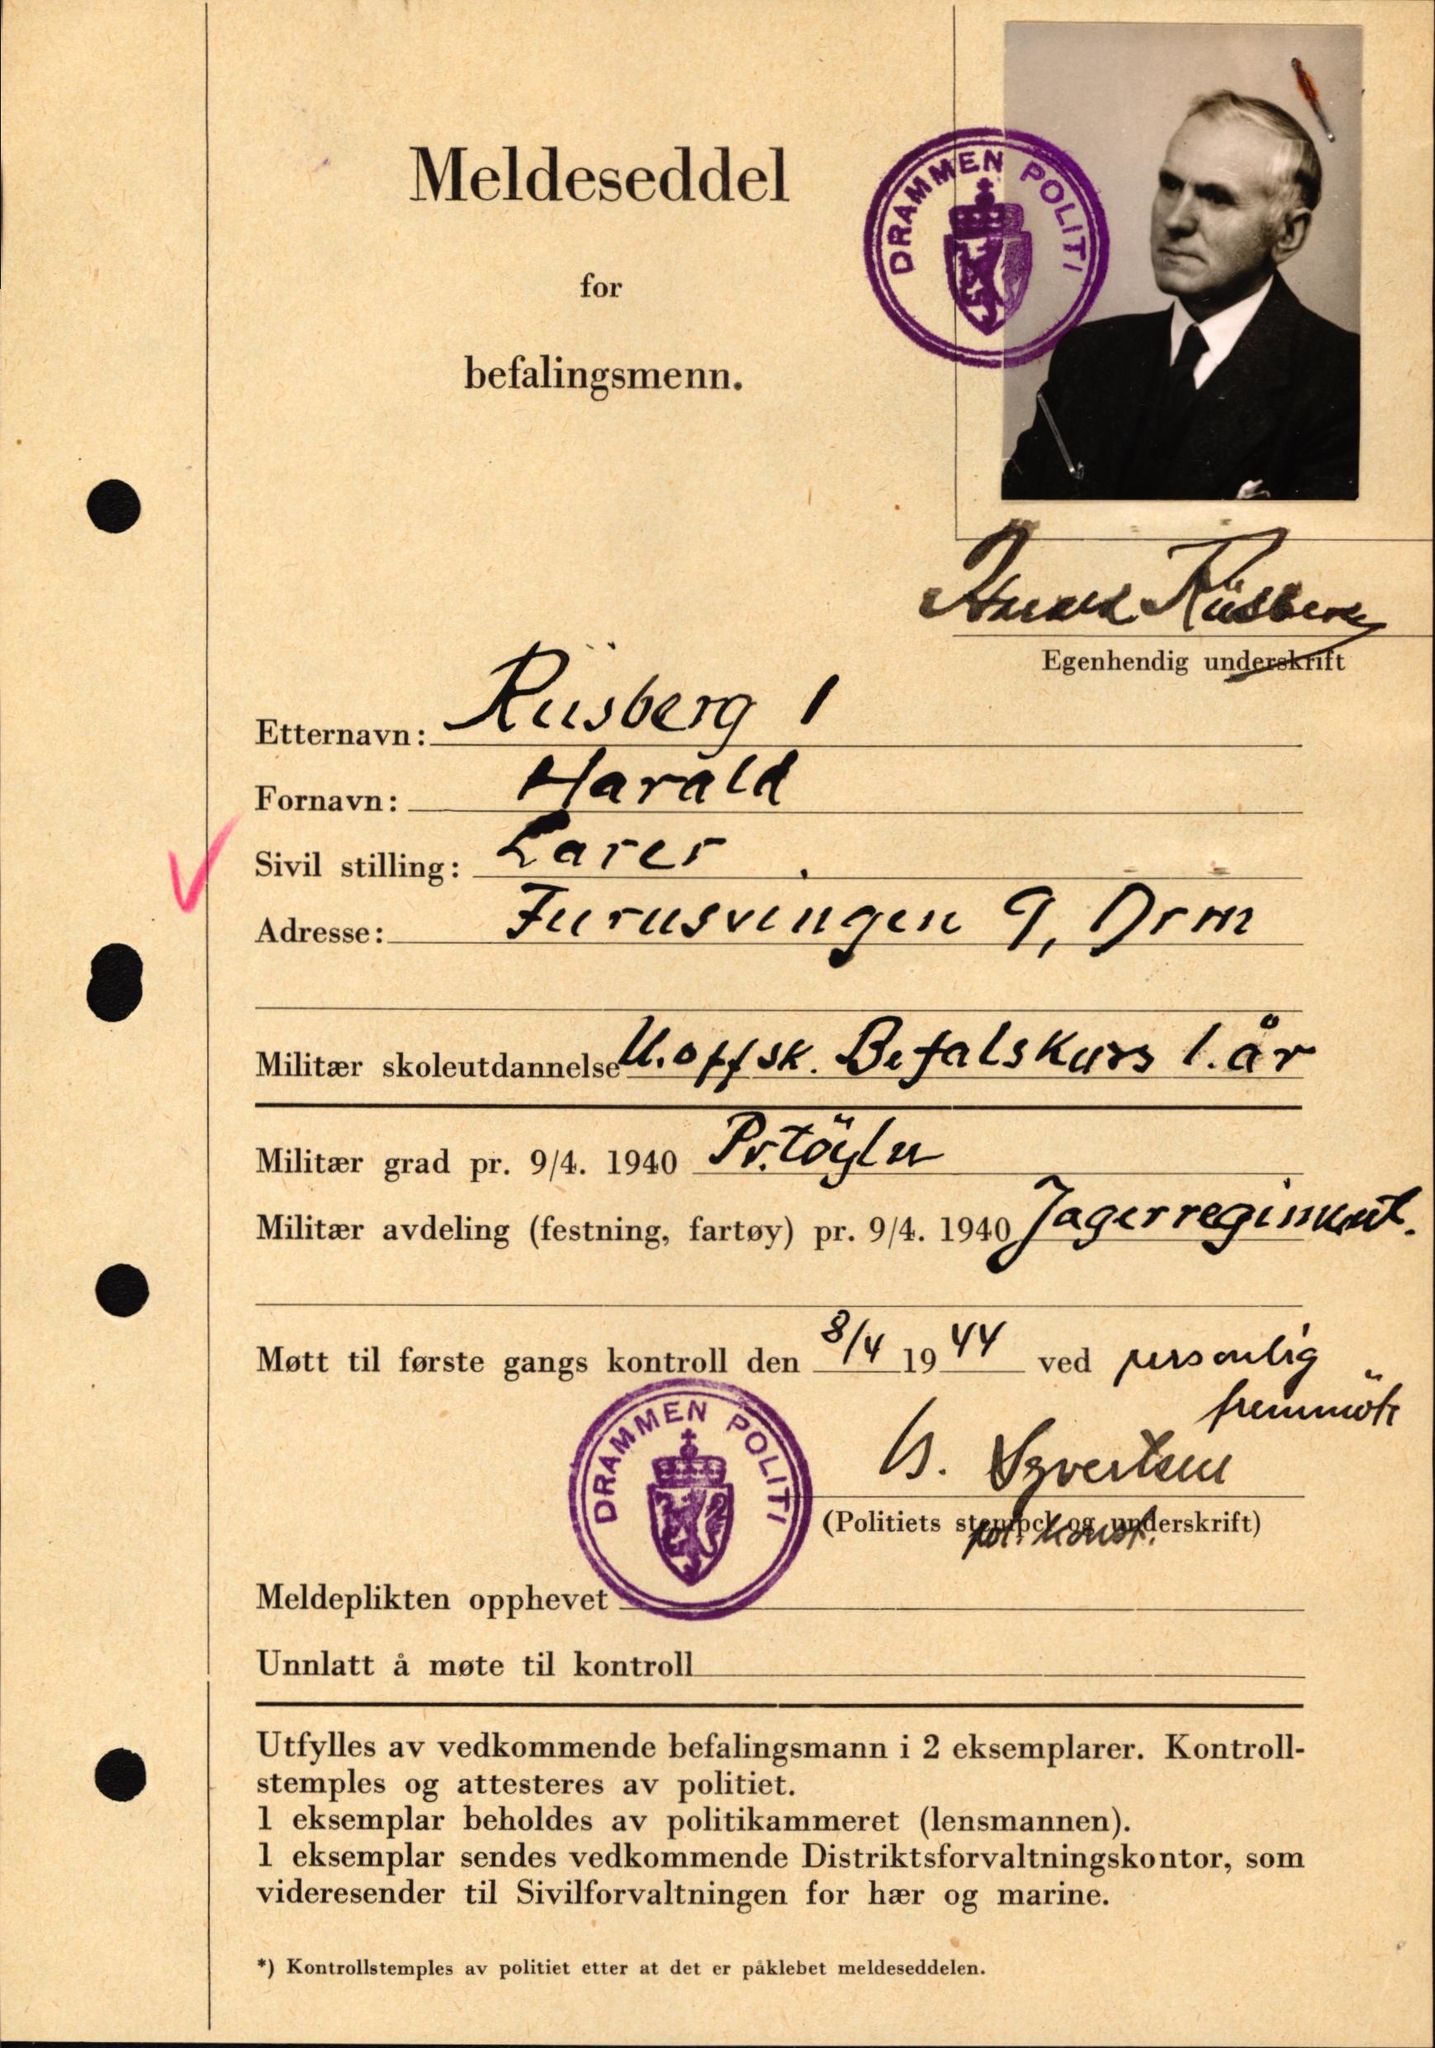 Meldeseddel
for
befalingsmenn.
DRAMMEN POLITI
Harald Riisberg
Egenhendig underskrift
Etternavn: Riisberg 1
Fornavn: Harald
Sivil stilling: Lærer
Adresse: Furusvingen 9, Drm
Militær skoleutdannelse U.offsk. Befalskurs 1. år
Militær grad pr. 9/4. 1940
Militær avdeling (festning, fartøy) pr. 9/4. 1940 Jagerregiment.
Møtt til første gangs kontroll den 8/4 1944 ved personlig
fremmöte
DRAMMEN POLITI
Syvertsen
(Politiets stempel og underskrift)
pol. konst.
Meldeplikten opphevet
Unnlatt å møte til kontroll
Utfylles av vedkommende befalingsmann i 2 eksemplarer. Kontroll-
stemples og attesteres av politiet.
1 eksemplar beholdes av politikammeret (lensmannen).
1 eksemplar sendes vedkommende Distriktsforvaltningskontor, som
videresender til Sivilforvaltningen for hær og marine.
*) Kontrollstemples av politiet etter at det er påklebet meldeseddelen.